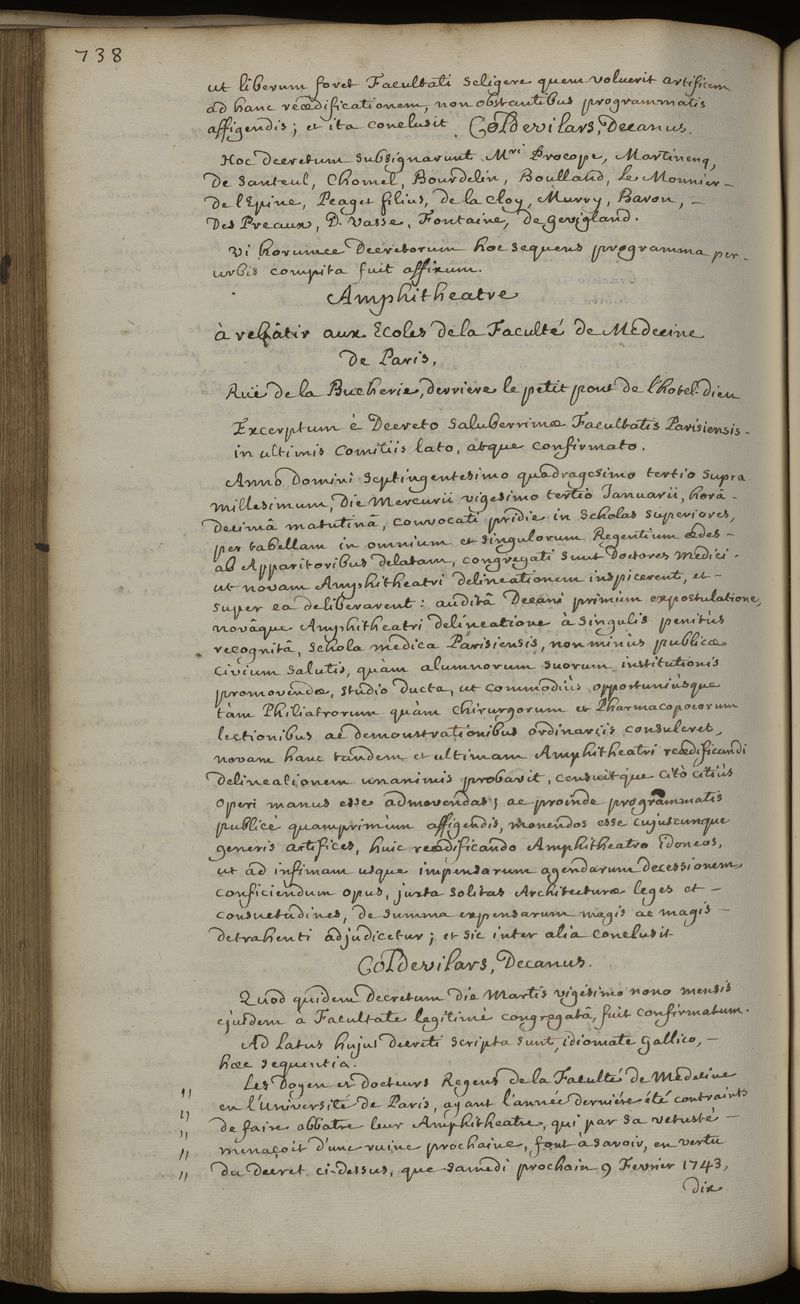 738
ut liberum foret Facultati seligere quem voluerit artificem
ad hanc reædificationem, non obstantibus programmatis
affigendis; et ita conclusit. Col De vilars, Decanus.
Hoc Decretum subsignarunt M.ri Procope, Martinenq,
De Santeul, Chomel, Bourdelin, Boulland, Le Monnier –
De l'Epine, Peaget filius, de la Cloy, Murry, Baron, –
Des Preaux, D. Vasse, Fontaine, de Gevigland.
Vi horumce Decretorum hoc sequens programma per –
urbis compita fuit affixum.
Amphitheatre
à rebâtir aux Ecoles de la Faculté de Médecine
De Paris,
Ruë de la Bucherie, derriere le petit pont de l'hotel-dieu
Excerptum è Decreto Saluberrimæ Facultatis Parisiensis –
in ultimis Comitiis lato, atque confirmato.
Anno Domini septingentesimo quadragesimo tertio supra
millesimum, Die Mercurii vigesimo tertio Januarii, horâ –
Decimâ matutinâ, convocati pridie in Scholas Superiores,
per tabellam in omnium et singulorum Regentium ædes –
ab Apparitoribus delatam, congregati sunt Doctores Medici –
ut novam Amphitheatri delineationem inspicerent, et –
super ea deliberarent: auditâ Decani primùm expostulatione,
novâque Amphitheatri delineatione à singulis penitùs
recognitâ, Schola medica Parisiensis, non minùs publicæ
civium salutis, quàm alumnorum suorum institutionis
promovendæ, studio ducta, ut commodiùs opportuniùsque
tàm Philiatrorum quàm Chirurgorum et Pharmacopoeorum
lectionibus ac demonstrationibus ordinariis consuleret,
novam hanc tandem et ultimam Amphitheatri reædificandi
delineationem unanimis probavit, censuitque citò citiùs
operi manus esse admovendas; ac proinde programmatis
publicè quamprimùm affigendis, monendos esse cujuscunque
generis artifices, huic reædificando Amphitheatro idoneos,
ut ad infimam usque impensarum agendarum decessionem
conficiendum opus, juxta solitas Architecturæ leges et –
consuetudines, de summa expensarum magis ac magis –
detrahenti adjudicetur; et sic inter alia conclusit
Col De vilars, Decanus.
Quod quidem Decretum Die Martis vigesimo nono mensis
ejusdem a Facultate legitimè congregatâ, fuit confirmatum.
Ad Latus hujus decreti scripta sunt, idiomate gallico, –
hæc sequentia.
" Les Doyen et docteurs Regens de la Faculté de Médecine
" en l'Université de Paris, ayant l'année derniére été contraints
" de faire abbatre leur Amphitheatre, qui par sa vetusté –
" menaçoit d'une ruine prochaine, font à savoir, en vertu
" du Decret ci-dessus, que samedi prochain 9 Fevrier 1743,
dix